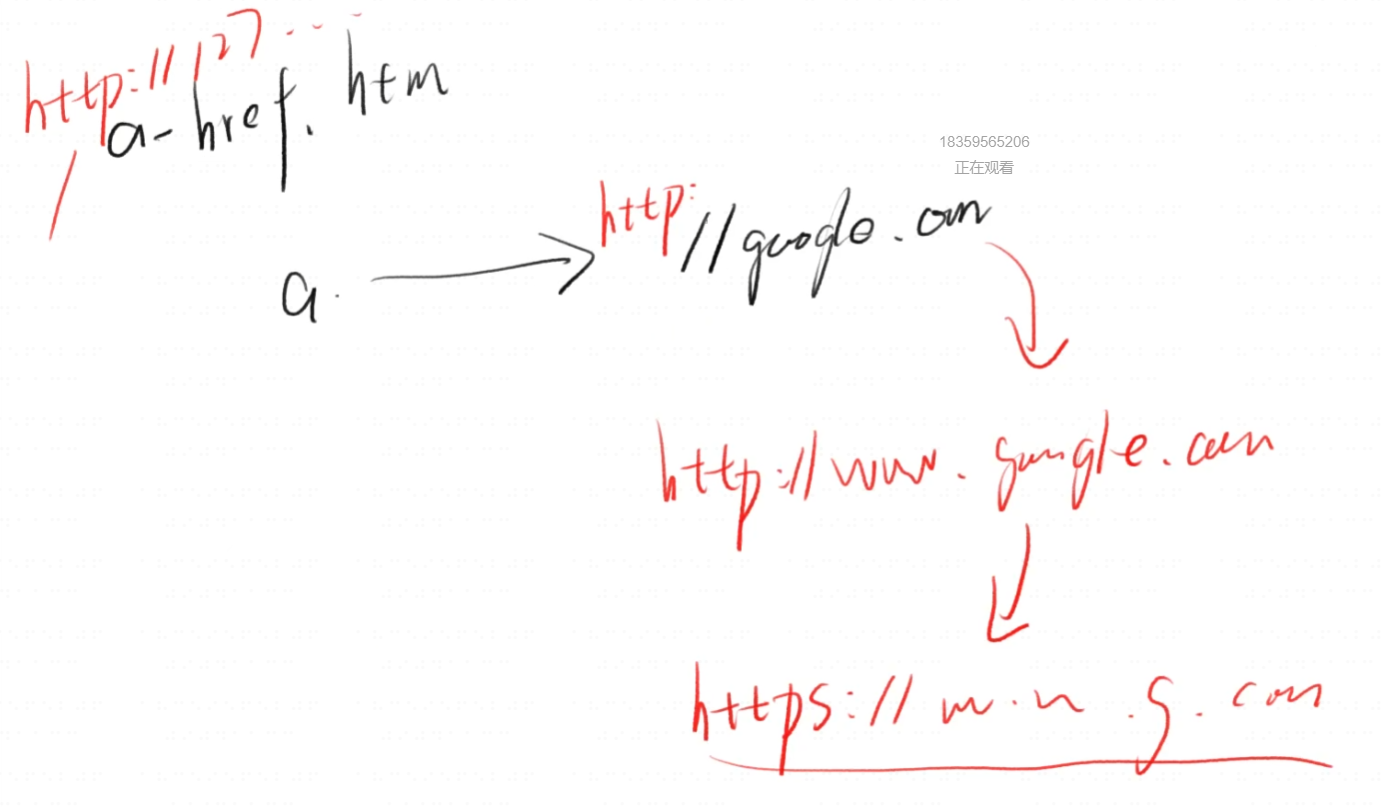 http://127...
a-href.htm
18359565206
正在观看
http://google.com
a.
http://www.google.com
https://www.g.com